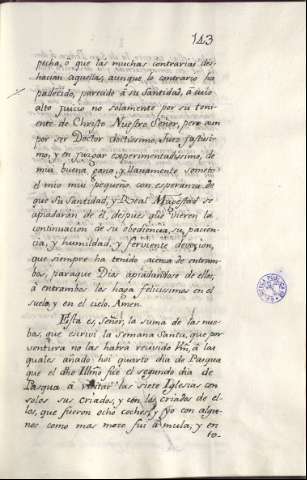 143
pecha, ò que las muchas contrarias des-
hacian aquellas, aunque lo contrario ha
padecido, parecido à su Santidad, à cuio
alto juicio no solamente por su teni-
ente de Christo Nuestro Señor, pero aun
por ser Doctor doctissimo, Juez justissi-
mo, y en juzgar experimentadissimo, de
mui buena gana, y llanamente someto
el mio mui pequeño con esperanza de
que Su Santidad, y Real Magestad se
apiadaràn de èl, despues que vieren la
continuacion de su obediencia, su pacien-
cia, y humildad, y ferviente devocion,
que siempre ha tenido acerca de entram-
bos, paraque Dios apiadandose de ellos,
à entrambos los haga felicissimos en el
suelo, y en el cielo. Amen.
Esta es, Señor, la suma de las nue-
bas, que escriví la Semana Santa, que por
ventura no las habrá recivido Vm, à las
quales añado: hoi quarto dia de Pasqua
que el dho Illmo fuè el segundo dia de
Pasqua à visitar las siete Iglesias con
solos sus criados, y con los criados de el-
los, que fueron ocho coches, y yo con algu-
nos como mas mozo fui à mula, y en
to-